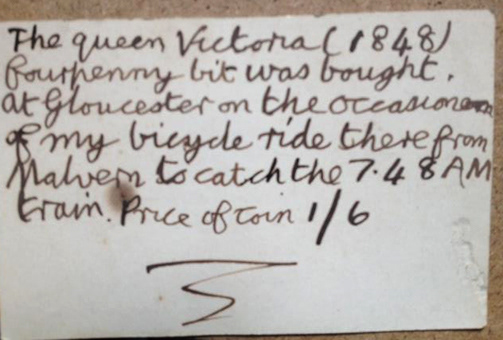 The queen Victoria (1848)
fourpenny bit was bought.
at Gloucester on the occasion
of my bicycle ride there from
Malvern to catch the 7.48 AM
train. Price of coin 1/6